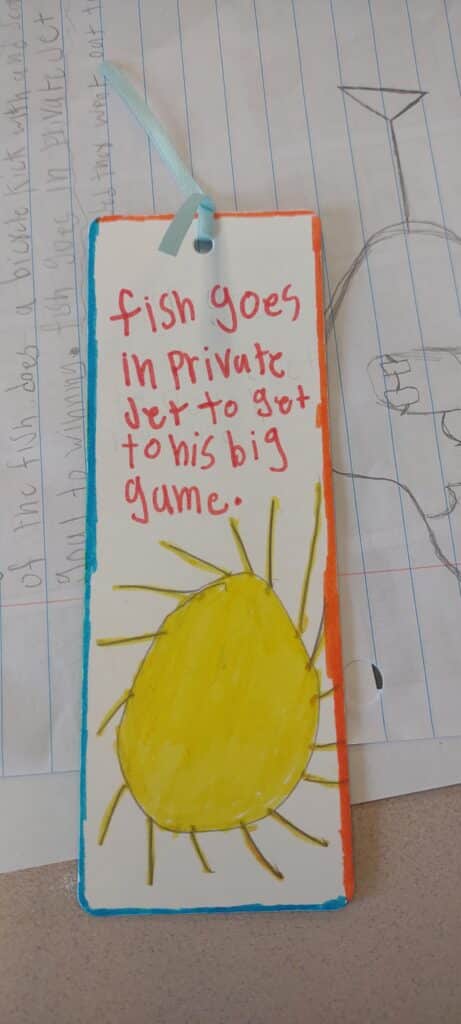 fish goes
in private
Jet to get
to his big
game.
of the fish does a bicycle kick with and
goal to winning. fish goes in private jet
they went eat